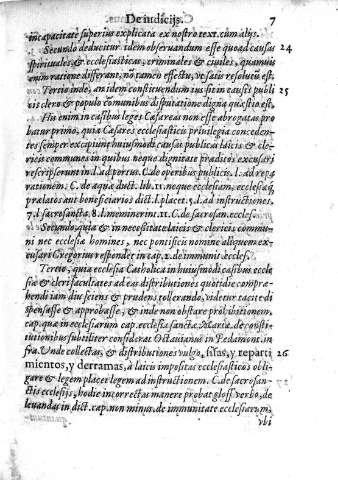 De iudicijs. 7
incapacitate superius explicata ex nostro text. cum alijs.
Secundo deducitur idem obseruandum esse quoad causas 24
spirituales, & ecclesiasticas, criminales & ciuiles, quamuis
enim ratione differant, nõ tamẽ effectu, vt satis resolutũ est.
Tertio inde, an idem constituendum sit in causis publi 25
cis clero & populo comunibus disputatione digna quæstio est,
His enim in casibus leges Cæsareas non esse abrogatas pro
batur primo, quia Cæsares ecclesiasticis priuilegia conceden-
tes semper excipiunt huiusmodi causas publicas laicis & cle-
ricis communes in quibus neque dignitate præditos excusari
rescripserunt in l. ad portus. C. de operibus publicis. l. ad repa
rationem. C. de aquæ duct. lib. 11. neque ecclesiam, ecclesiæq;
prælatos aut beneficiarios dict. l. placet. 5. l. ad instructiones.
7. l sacrosancta. 8. l. neminem. 11. C. de sacrosan. eccles.
Secundo, quia & in necessitate laicis & clericis commu-
ni nec ecclesia homines, nec pontificis nomine aliquem ex-
cusari Gregorius responder in cap. 2. de immunit eccles.
Tertio, quia ecclesia Catholica in huiusmodi casibus eccle
siæ & clerifacultates ad eas distributiones quotidie compre-
hendi iam diu sciens & prudens tollerando, videtur tacitè di
spensasse & approbasse, & inde non obstare prohibitionem
cap. qua in ecclesiarum cap. ecclesia sanctæ Mariæ. de consti-
tutionibus subtiliter considerat Octauianus in Pedamont. in
fra. Unde collectas, & distributiones vulgo, sisas, y reparti 26
mientos, y derramas, à laicis impositas ecclesiasticos obli-
gare & legem placet legem ad instructionem. C. de sacrosan-
ctis ecclesijs, hodie incorrectas manere probat gloss. verbo, de
leuandas in dict. cap. non minus. de immunitate ecclesiarum,
vbi